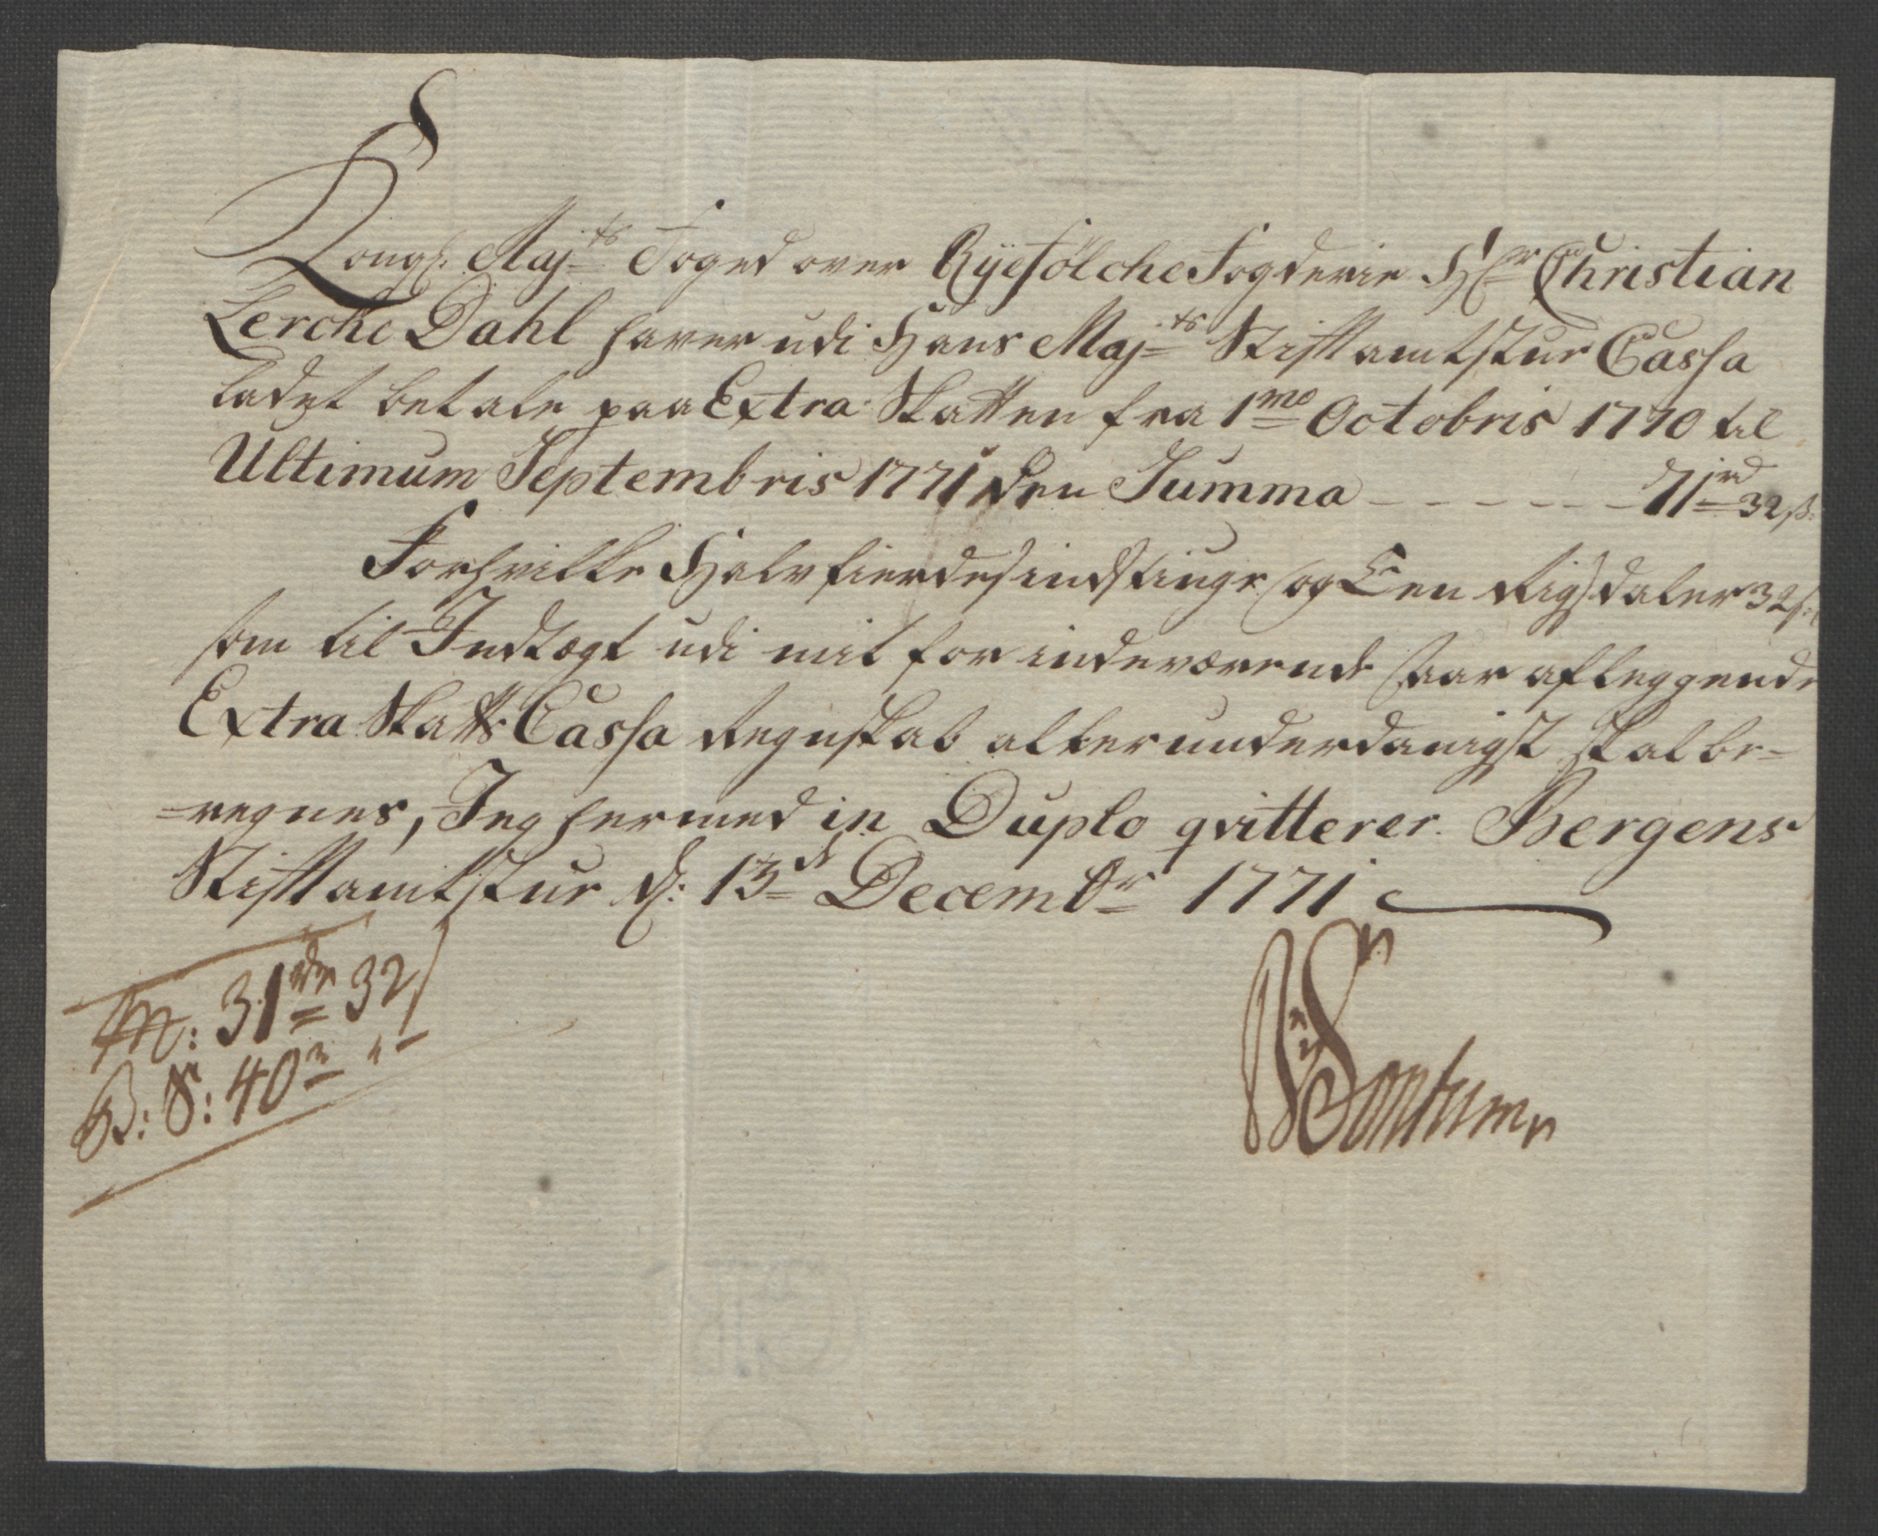 Kongl. Majts Foged over Ryefölche Fogderie Hr Christian
Lerche Dahl haver udi Hans Majts Stiftamtstue Cassa
ladet betale paa Extra Skatten fra 1mo Octobris 1770 til
Ultimum Septembris 1771 den Summa - - - - - - 71 rd 32 s:
Forhvilke Halvfierdesindstiuge og Een Rigsdaler 32 s:
som til Indtægt udi mit for indeværende Aar afleggende
Extra Skatts Cassa Regnskab allerunderdanigst skal be-
-regnes, Jeg hermed in Duplo qvitterer. Bergens
Stiftamtstue d: 13d Decembr 1771
M: 31 rdr 32
B: S: 40 r " -
Sontum